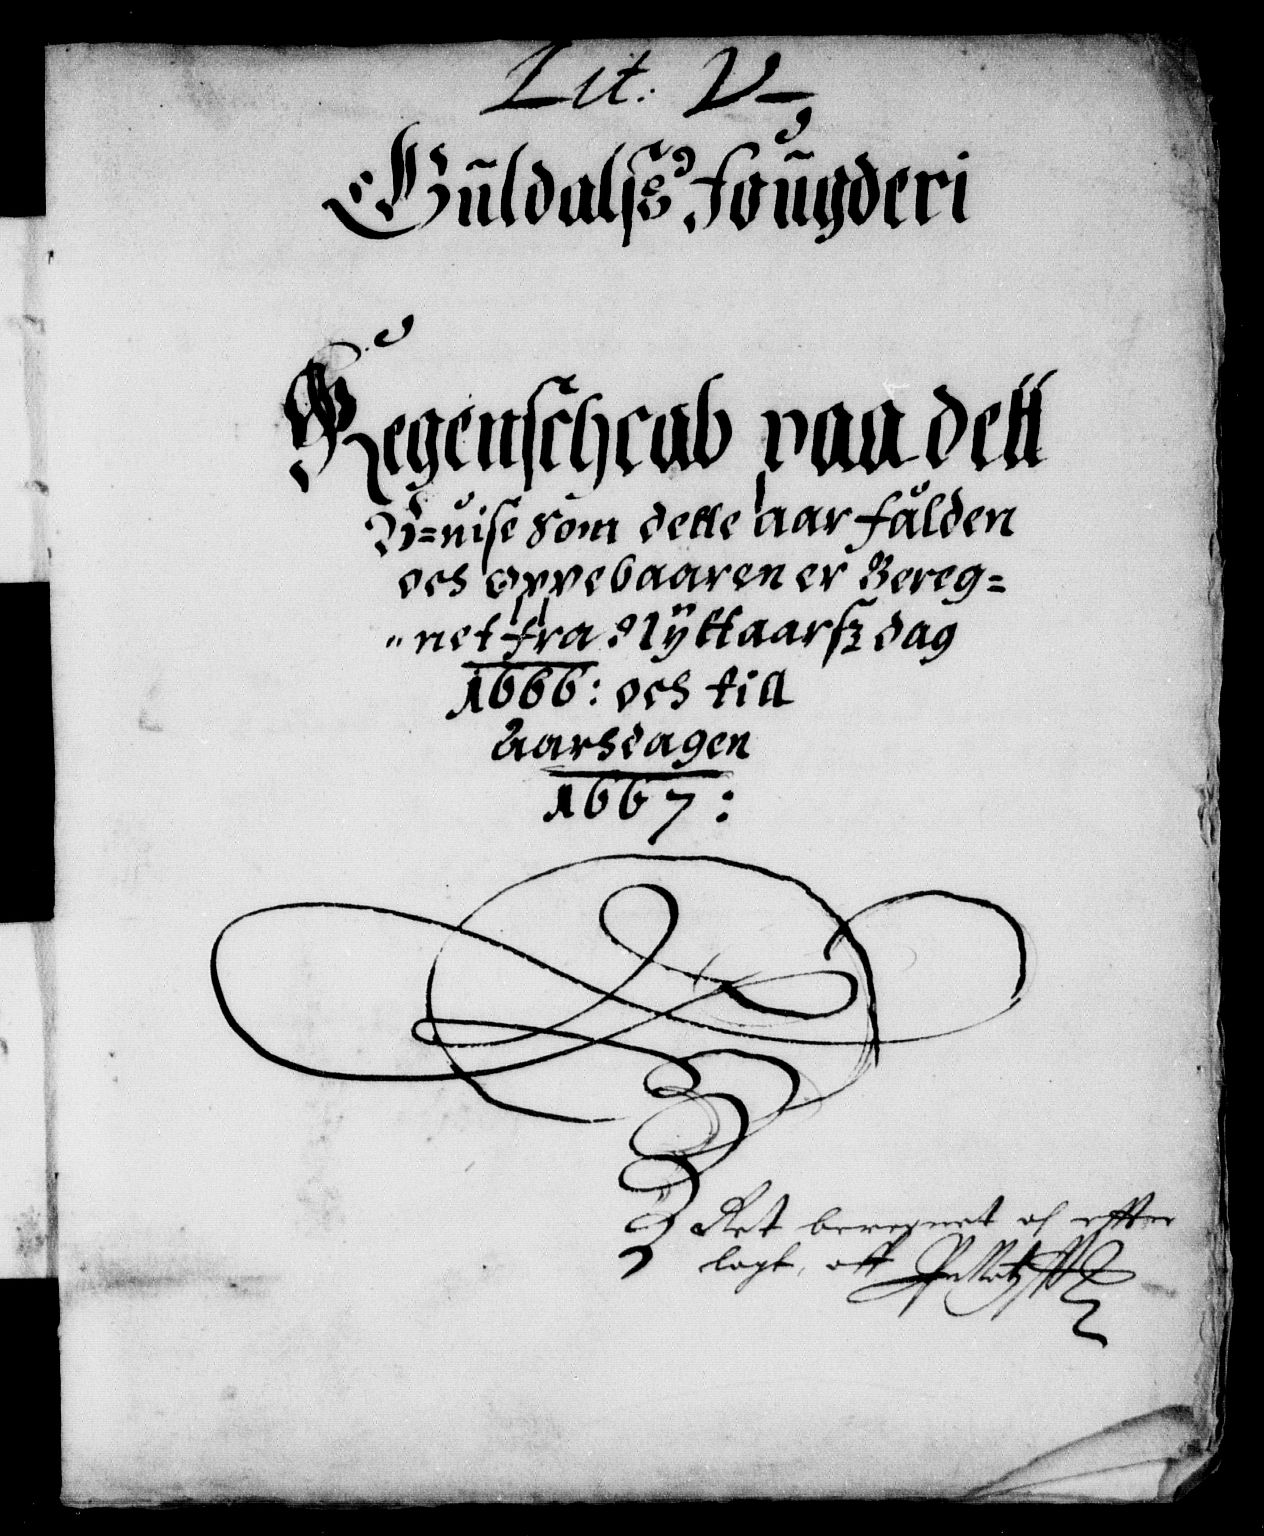 Lit: V
Gũldalsß foũgderi
Regenschcab paa dett
V=uise som dette aar fålden
och oppebaaren er Bereg=
"net fra Nÿttaarsz dag
1666: och till
Aarsdagen
1667:
Ret beregnet og effter
lagt, att